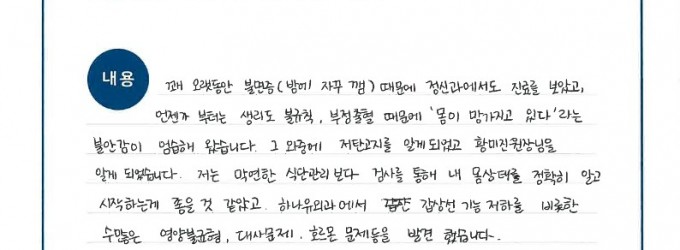 내용
꽤 오랫동안 불면증(밤에 자꾸 깸) 때문에 정신과에서도 진료를 보았고,
언젠가 부터는 생리도 불규칙, 부정출혈 때문에 '몸이 망가지고 있다'라는
불안감이 엄습해 왔습니다. 그 와중에 저탄고지를 알게되었고 황미진원장님을
알게 되었습니다. 저는 막연한 식단관리보다 검사를 통해 내 몸상태를 정확히 알고
시작하는게 좋을 것 같았고. 하나유외과에서 갑상선 기능저하를 비롯한
수많은 영양불균형, 대사문제. 호르몬 문제등을 발견 했습니다.